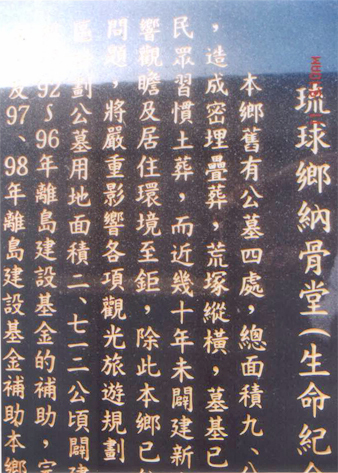 琉球鄉納骨堂(生命紀
本鄉舊有公墓四處,總面積九、
,造成密埋疊葬,荒塚縱橫,墓基已
民眾習慣土葬,而近幾十年未闢建新
響觀瞻及居住環境至鉅,除此本鄉已
問題,將嚴重影響各項觀光旅遊規劃
劃公墓用地面積二、七一二公頃闢建
92~96年離島建設基金的補助,
及97、98年離島建設基金補助本鄉